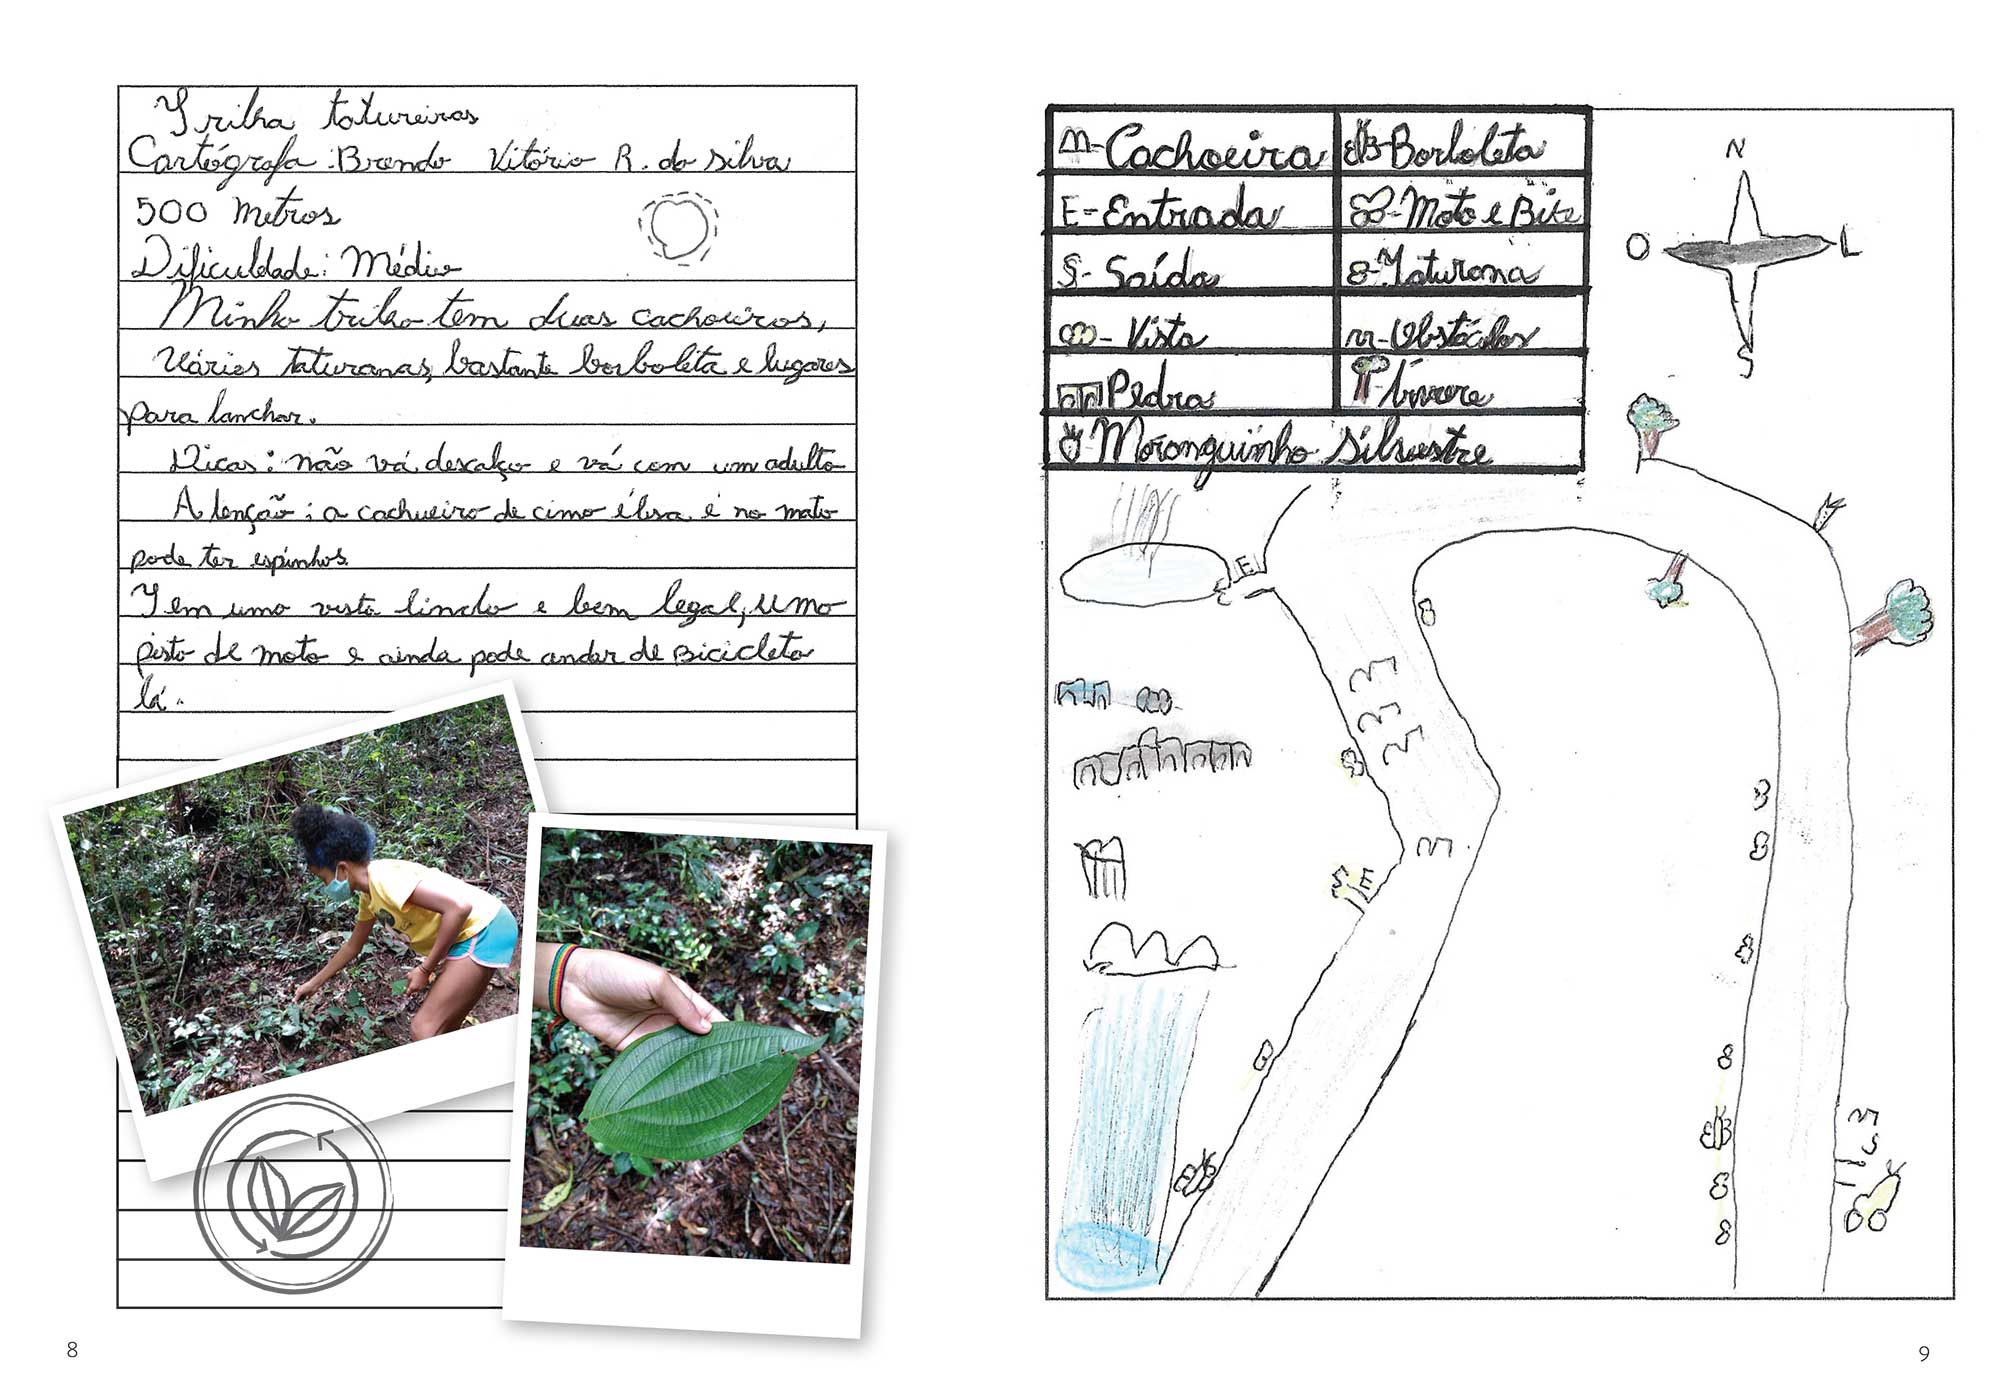 Trilha tatureiras
Cartógrafa: Brenda Vitória R. da Silva
500 metros
Dificuldade: Médio
Minha trilha tem duas cachoeiras,
Várias taturanas, bastante borboleta e lugares
para lanchar.
Dicas: não vá descalço e vá com um adulto
Atenção: a cachoeira de cima é lisa e no mato
pode ter espinhos.
Tem uma vista linda e bem legal, uma
pista de moto e ainda pode andar de Bicicleta
lá.
8
M-Cachoeira
B-Borboleta
E-Entrada
Moto e Bike
S-Saída
8-Taturana
Vista
Obstáculos
Pedra
Árvore
Moranguinho Silvestre
N
O
L
S
E
S E
S
9